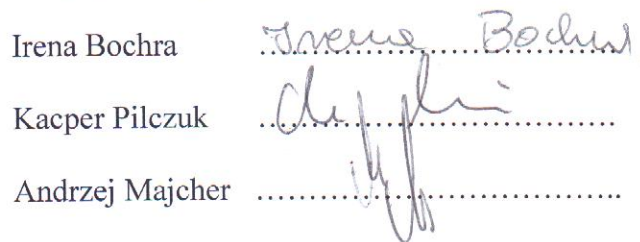 Irena Bochra .................................... Irena Bochra
Kacper Pilczuk ....................................
Andrzej Majcher ....................................